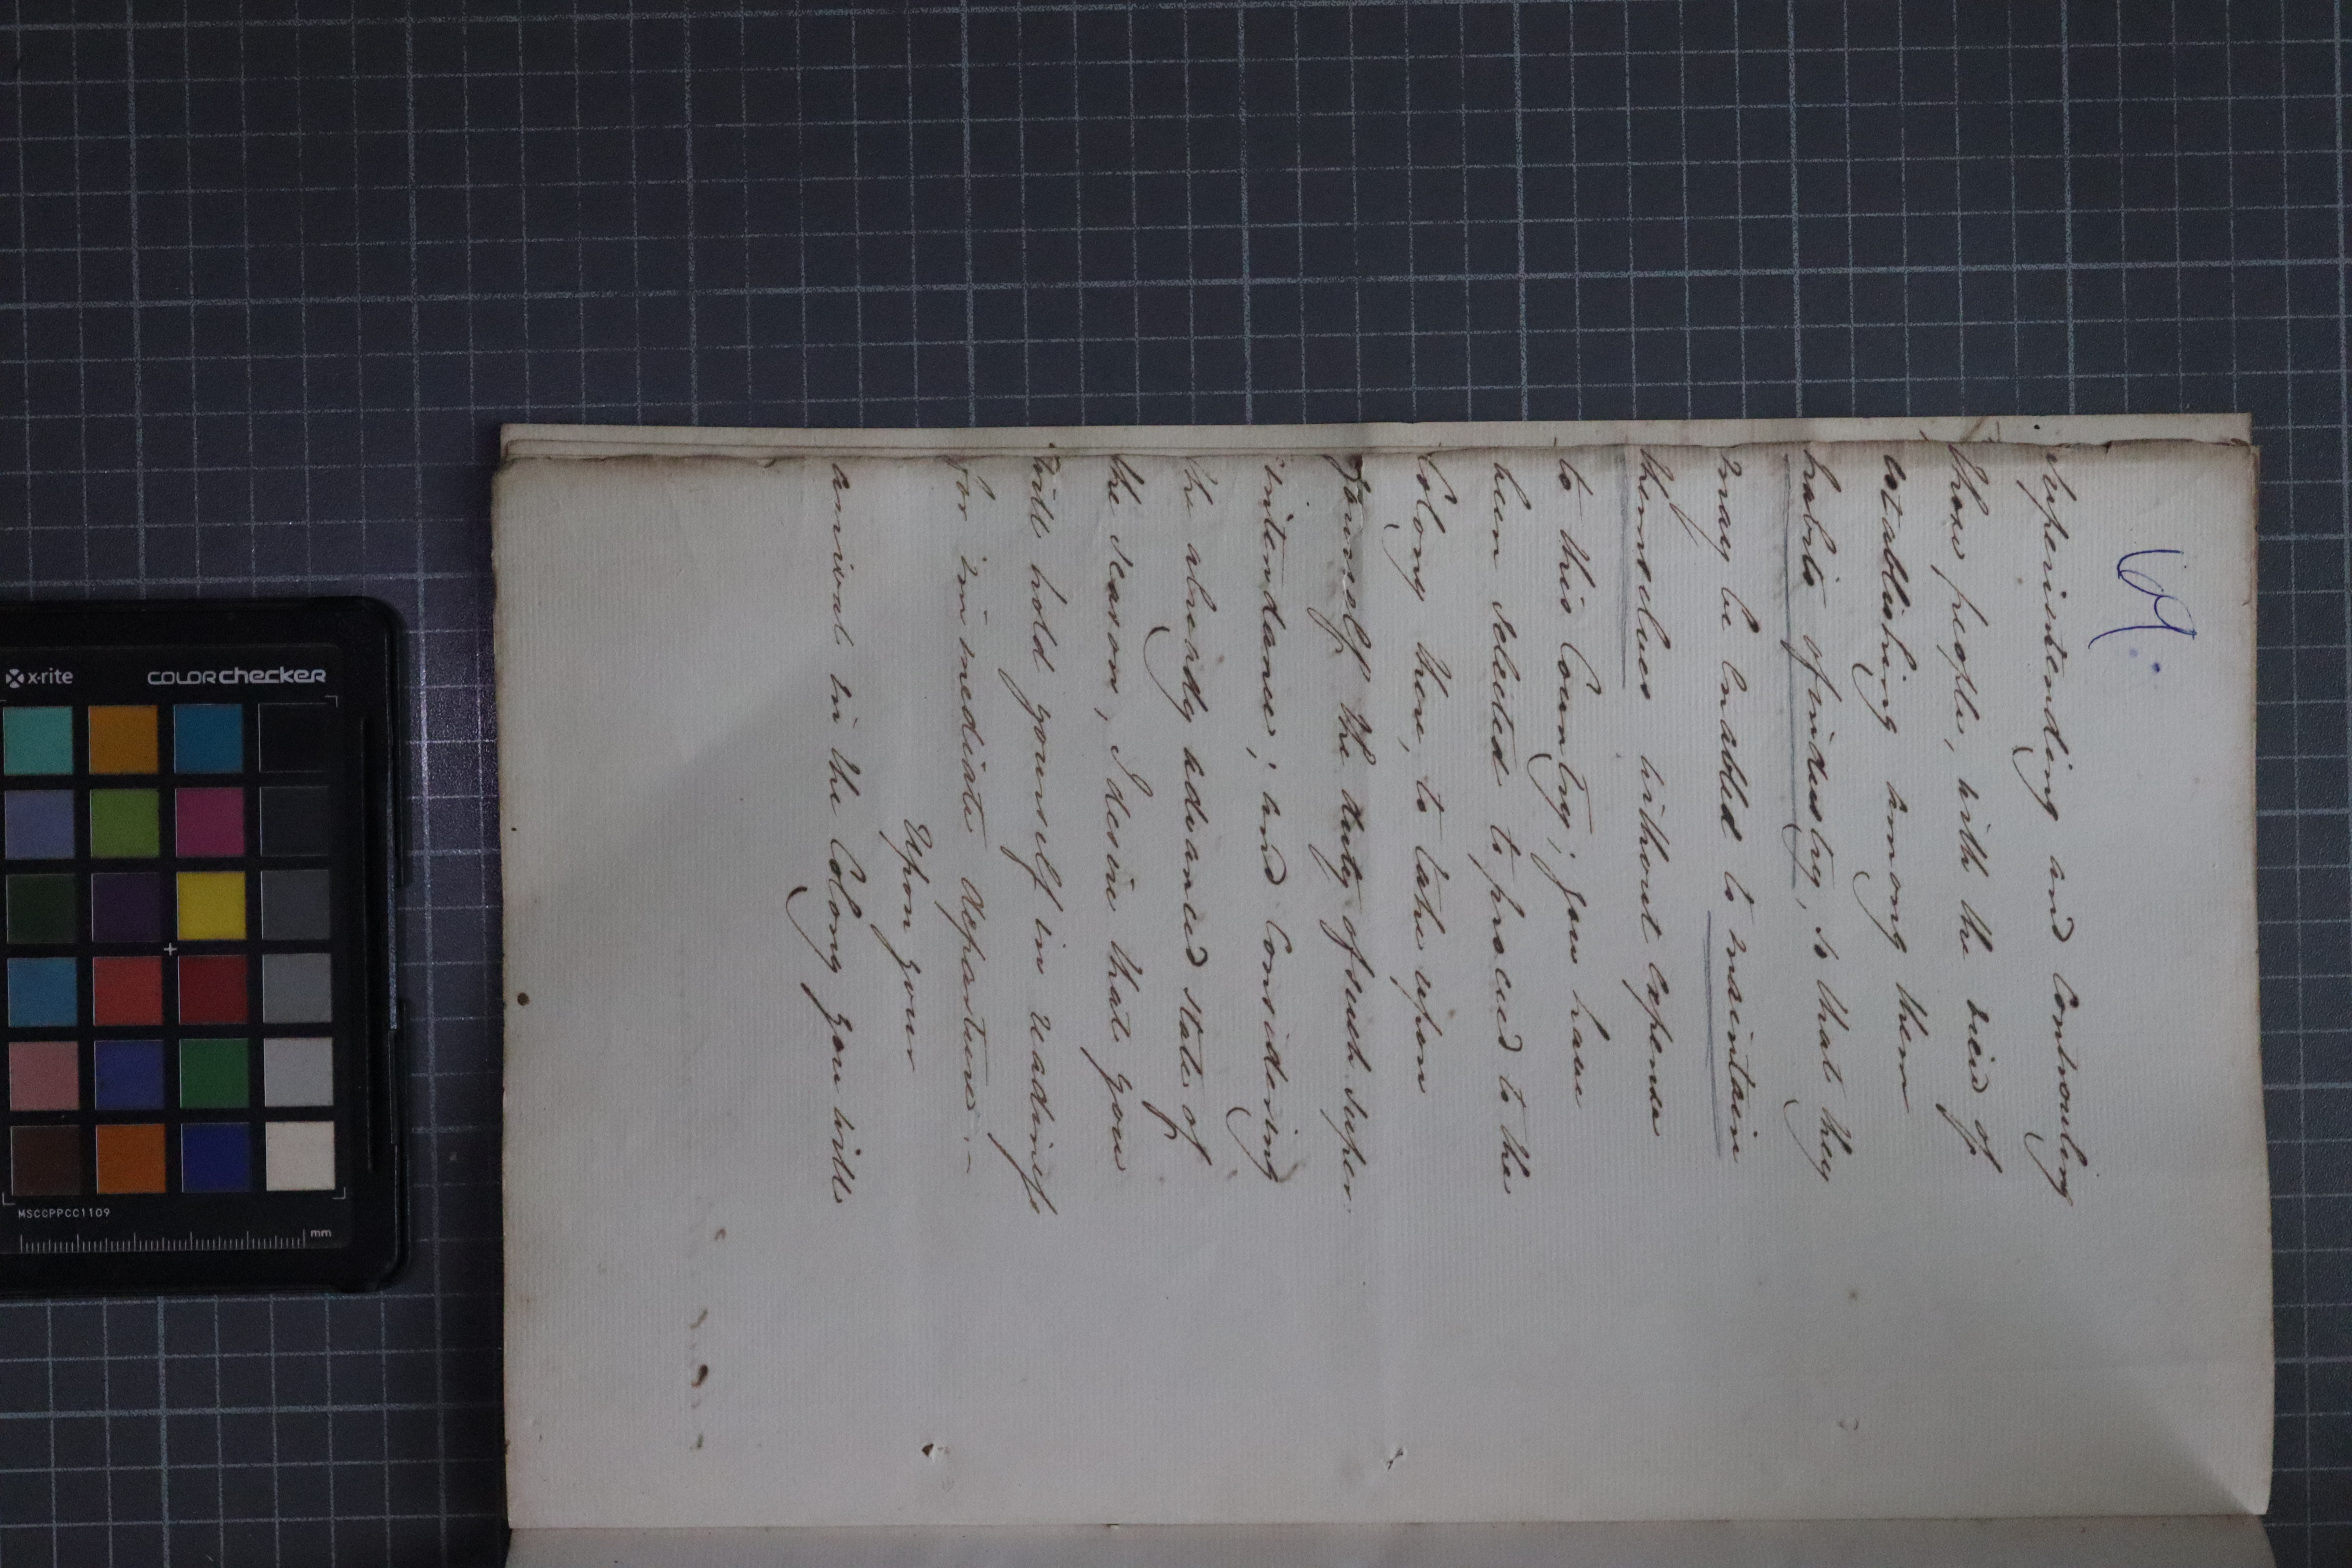 69.
Superintending and Controuling
those people, with the view of
establishing among them
habits of industry, so that they
may be enabled to maintain
themselves without expense
to this Country; you have
been selected to proceed to the
Colony there, to take upon
yourself the duty of such super-
intendance; and Considering
the already advanced state of
the season, I desire that you
will hold yourself in readiness
for immediate departure.—
Upon your
arrival in the Colony you will
x-rite
colorchecker
MSCCPPCC1109
mm